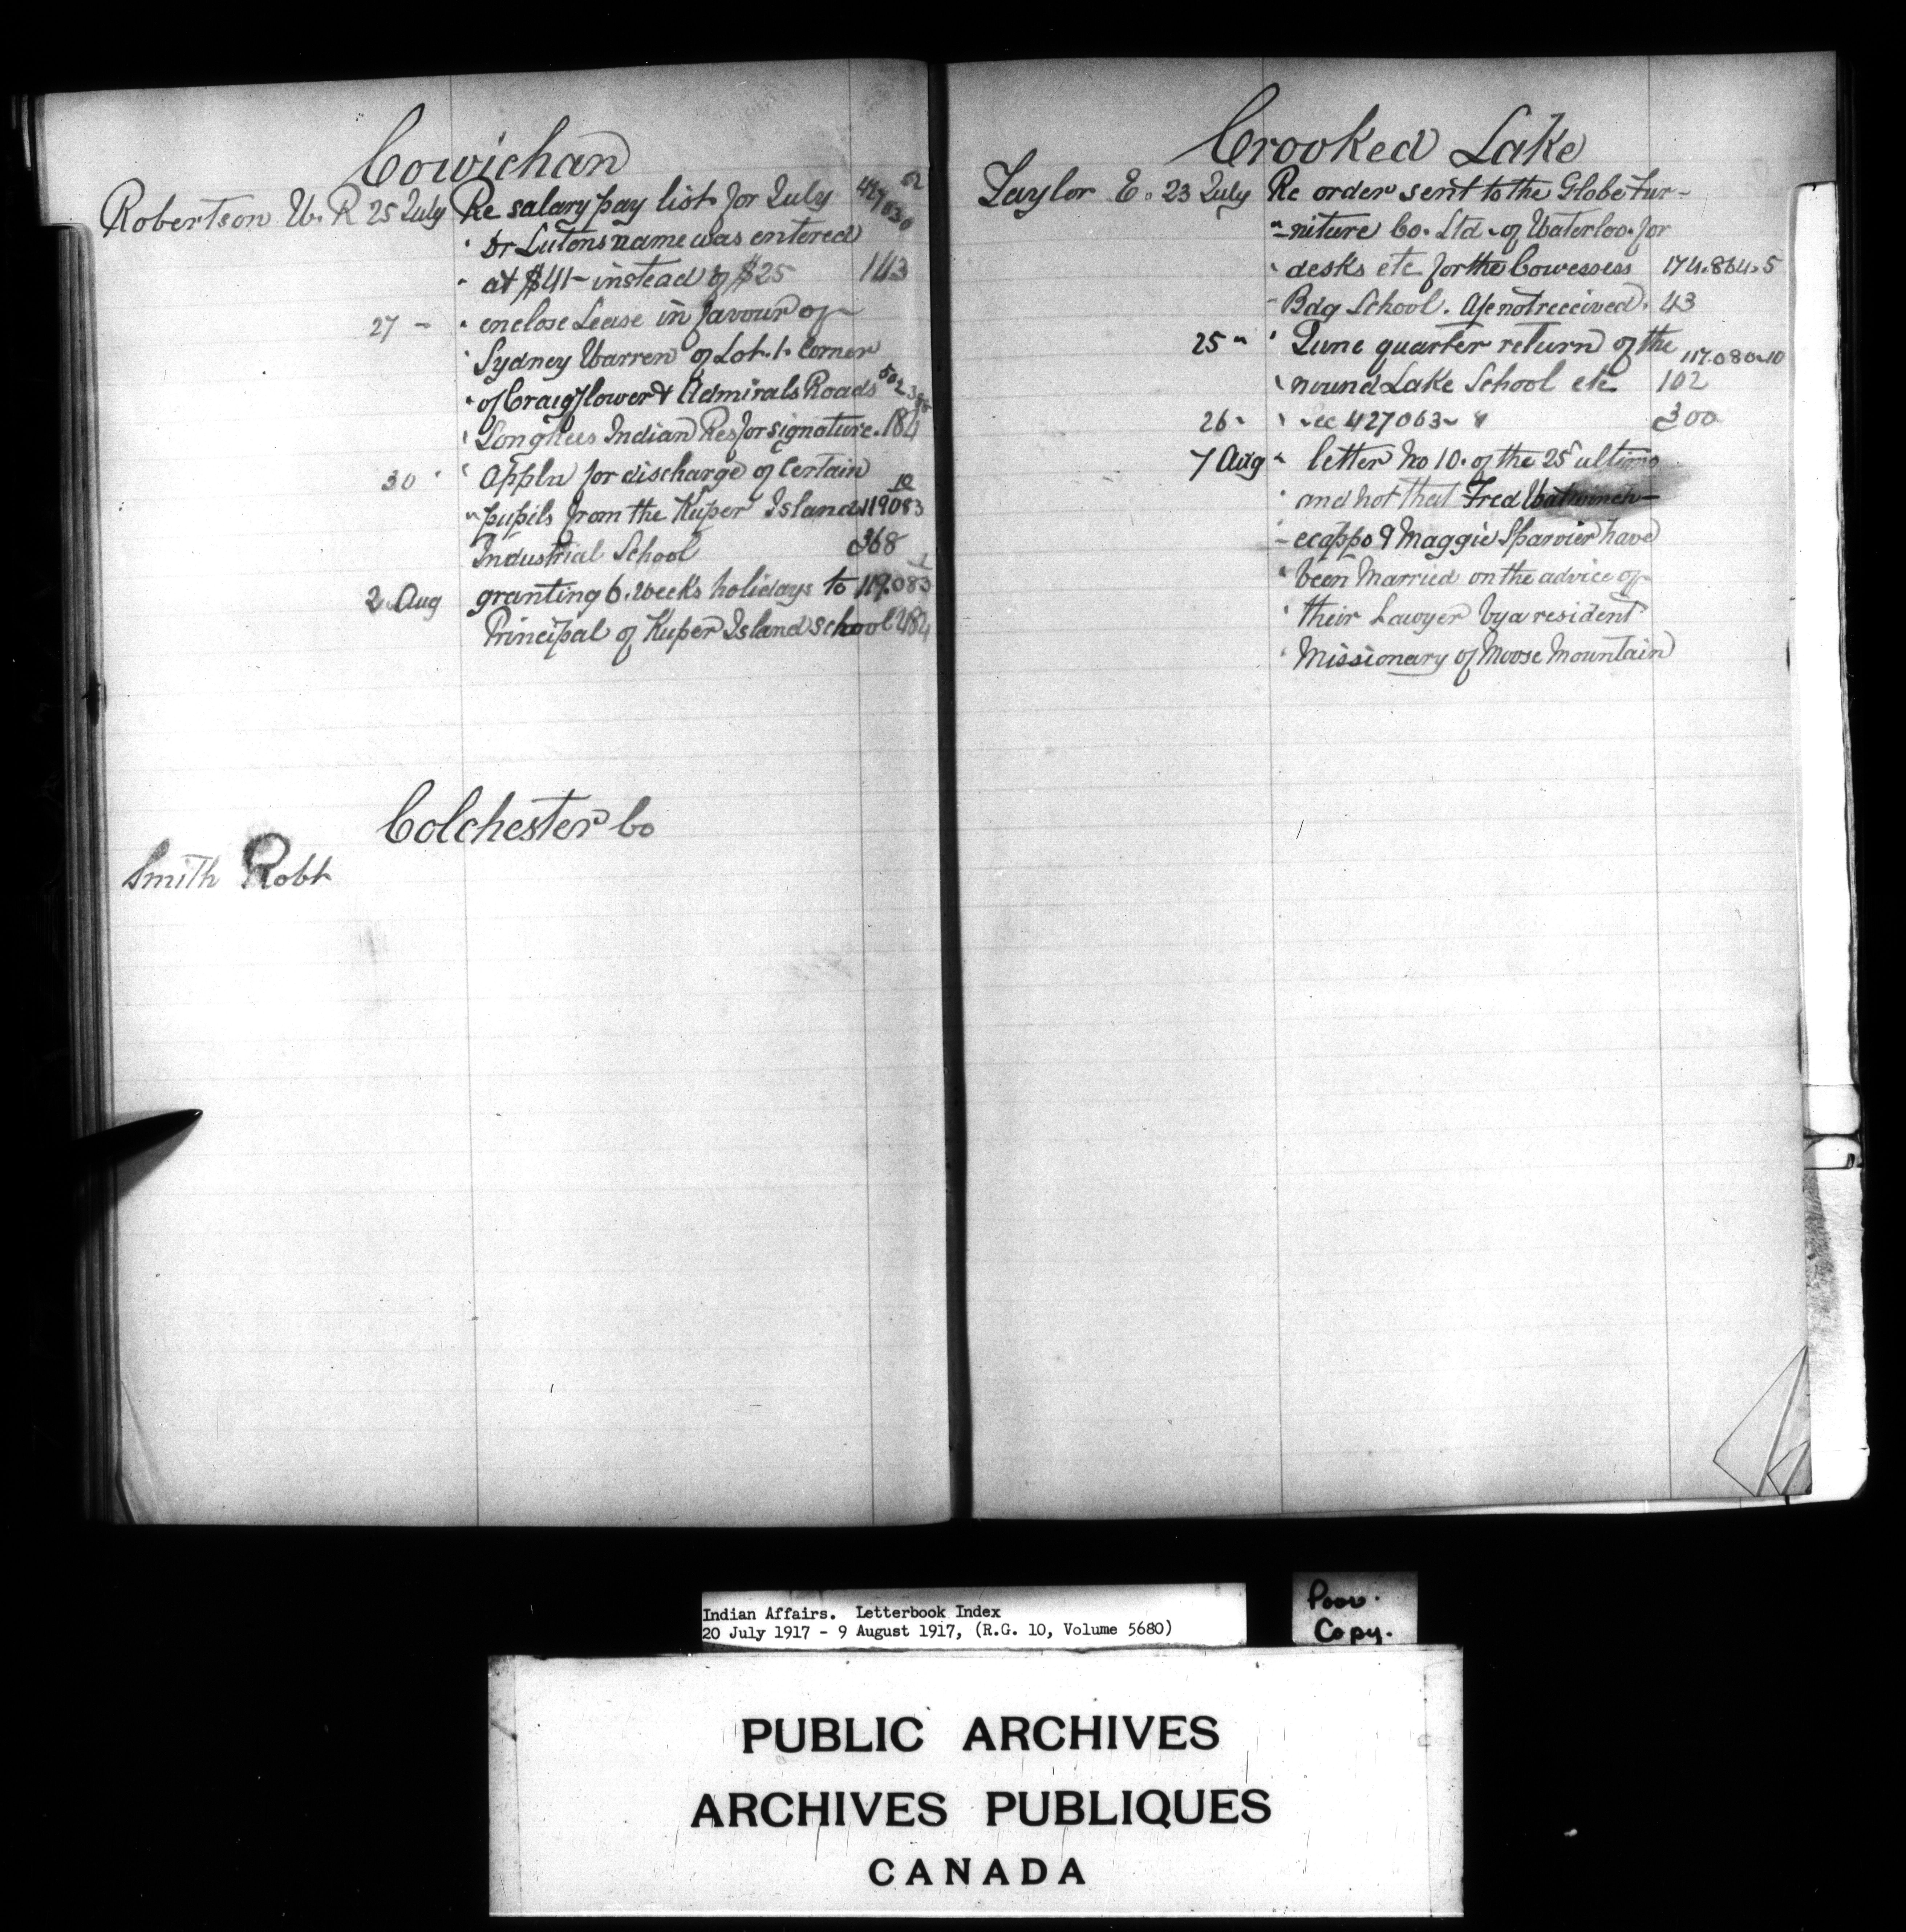 Cowichan
Robertson W. R 25 July Re salary pay list for July
" Dr Lutons name was entered
" at $41- instead of $25 143
27 - " enclose Lease in favour of
" Sydney Warren of Lot. 1. Corner
" of Craigflower & Admirals Roads
" Songhees Indian Res for signature. 184
30 " " Appln for discharge of Certain 10
" pupils from the Kuper Island 119083
Industrial School 368
2 Aug granting 6. weeks holidays to 119.083
Principal of Kuper Island school 484
Colchester Co
Smith Robt
Crooked Lake
Taylor E. 23 July Re order sent to the Globe Fur-
" -niture Co. Ltd. of Waterloo. for
" desks etc for the Cowessess 174.864.5
" Bdg School. A/c not received. 43
25 " " June quarter return of the 117.080-10
" round Lake School etc 102
26 " " -ec 427063- 300
7 Aug " letter No 10. of the 25 ultimo
" and not that Fred
- ecappo & Maggie Sparvier have
" been Married on the advice of
" their Lawyer by a resident
" Missionary of Moose Mountain
Indian Affairs. Letterbook Index
20 July 1917 - 9 August 1917, (R.G. 10, Volume 5680)
Poor.
Copy.
PUBLIC ARCHIVES
ARCHIVES PUBLIQUES
CANADA